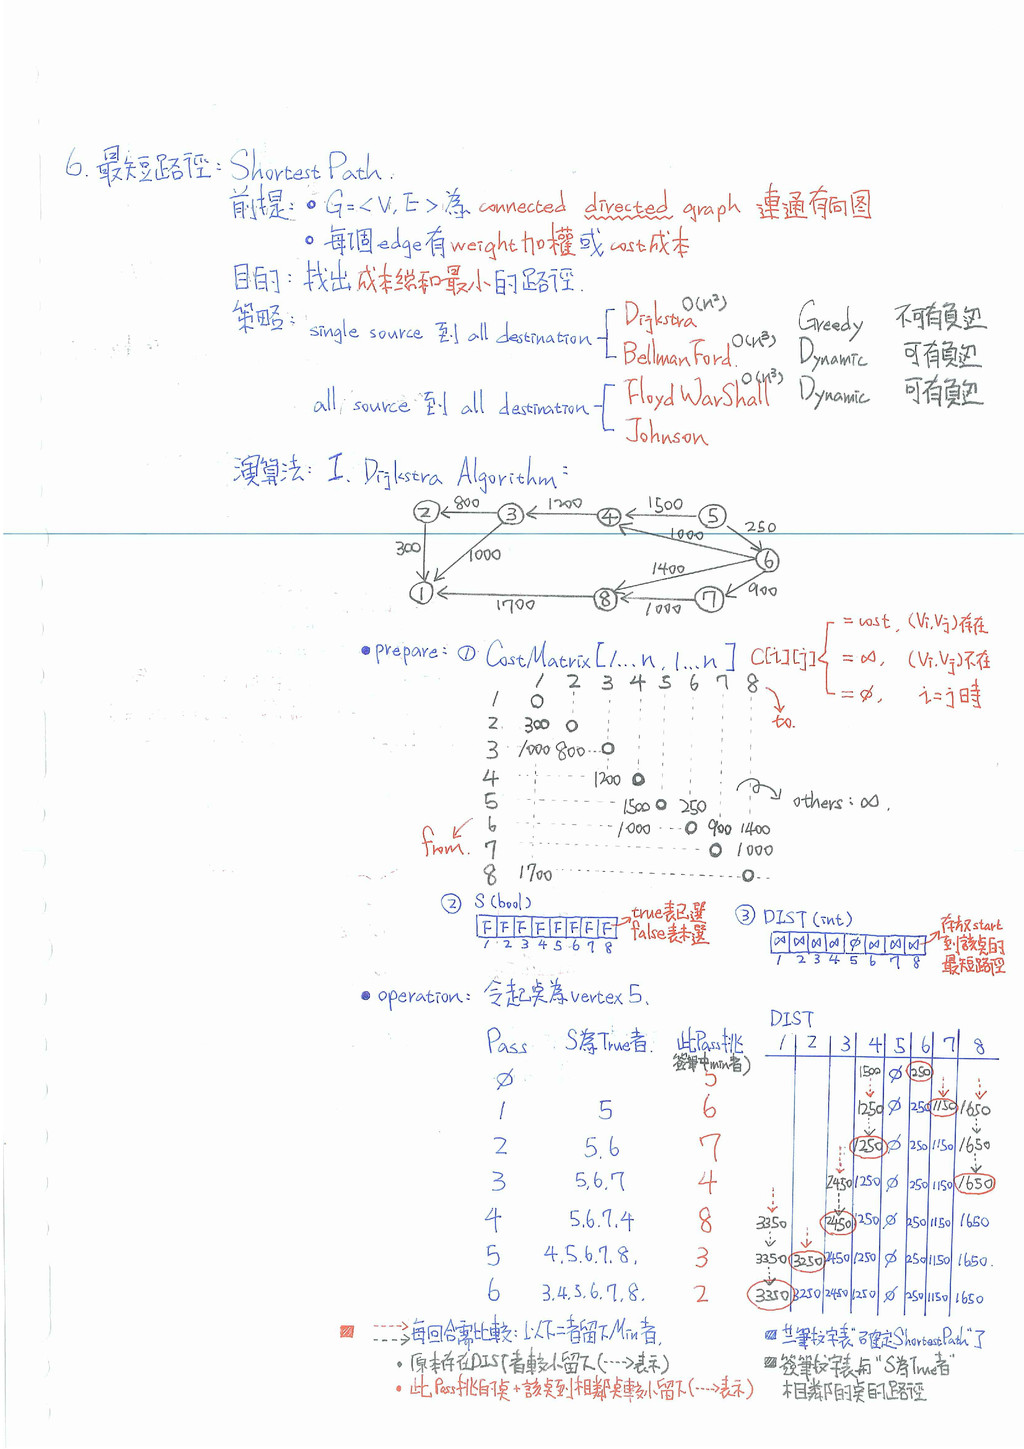 6. 最短路徑: Shortest Path.
前提: • G=<V, E>為 connected directed graph 連通有向图
• 每個edge有weight加權或cost成本
目的: 找出成本總和最小的路徑.
策略: single source 到 all destination
Dijkstra O(n²) Greedy 不可有負迴
Bellman Ford. O(n³) Dynamic 可有負迴
all source 到 all destination
Floyd WarShall O(n³) Dynamic 可有負迴
Johnson
演算法: I. Dijkstra Algorithm:
2 800 3 1200 4 1500 5
300 1000 1000 250
1400 6
900
1 1700 8 1000 7
• prepare: ① CostMatrix[1...n, 1...n] C[i][j]
= cost, (Vi,Vj)存在
= ∞, (Vi,Vj)不在
= ϕ, i=j時
1 2 3 4 5 6 7 8
to.
1 0
2 300 0
3 1000 800 0
4 1200 0
5 1500 0 250
6 1000 0 900 1400
7 0 1000
8 1700 0
others: ∞.
from.
② S(bool)
F F F F F F F F
1 2 3 4 5 6 7 8
true表已選
false表未選
③ DIST(int)
∞ ∞ ∞ ∞ ϕ ∞ ∞ ∞
1 2 3 4 5 6 7 8
存放start
到該點的
最短路徑
• operation: 令起點為vertex 5.
DIST
Pass S為True者. 此Pass挑 1 2 3 4 5 6 7 8
(鉛筆中min者)
ϕ 5 1500 ϕ 250
1 5 6 1250 ϕ 250 1150 1650
2 5,6 7 1250 ϕ 250 1150 1650
3 5,6,7 4 2450 1250 ϕ 250 1150 1650
4 5.6.7.4 8 3350 2450 1250 ϕ 250 1150 1650
5 4.5.6.7.8. 3 3350 3250 2450 1250 ϕ 250 1150 1650.
6 3.4.5.6.7.8. 2 3350 3250 2450 1250 ϕ 250 1150 1650
每回合需比較: 以下二者留下Min者.
• 原本存在DIST者較小留下(---->表示)
• 此Pass挑的点+該点到相鄰点較小留下(---->表示)
藍筆数字表"確定ShortestPath"了
鉛筆数字表与"S為True者"
相鄰的点的路徑